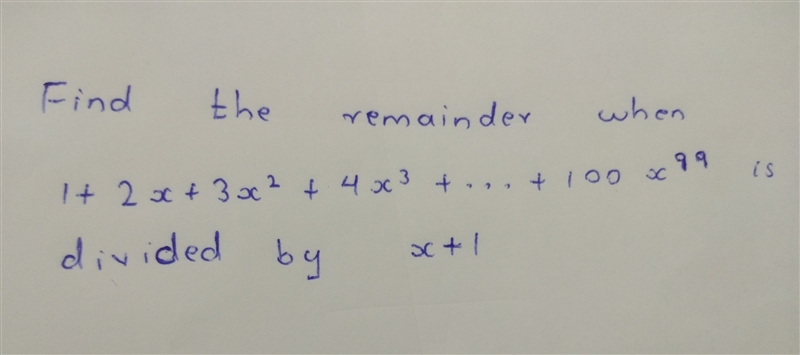 Find the remainder when
1 + 2x + 3x² + 4x³ + ... + 100 x⁹⁹ is
divided by x+1